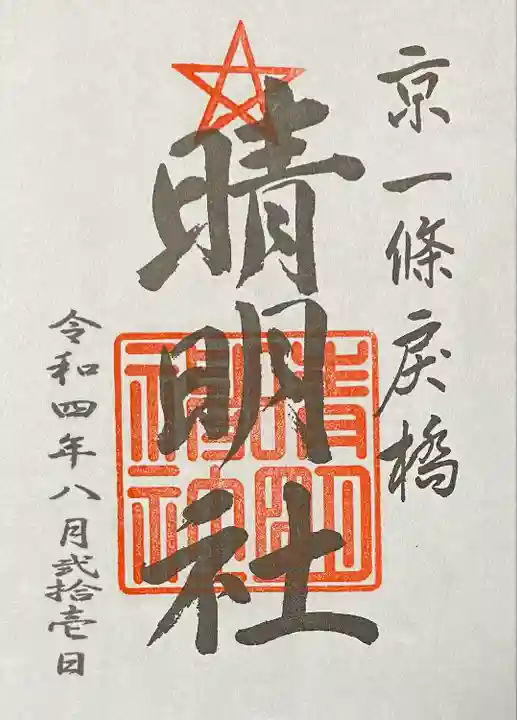 京一條戻橋
晴明社
晴明
神社
令和四年八月弐拾壱日